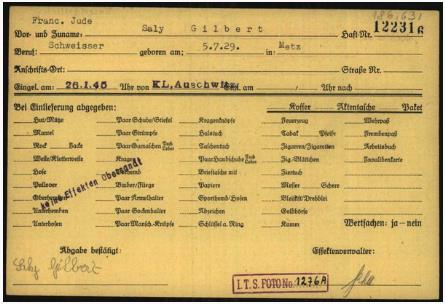 Franc. Jude
186,631
Vor- und Zuname: Saly Gilbert Haft-Nr. 122316
Beruf: Schweisser geboren am: 5.7.29. in: Metz
Anschrifts-Ort: Straße Nr.
Eingel. am 26.1.45 Uhr von KL. Auschwitz Entl. am / Uhr nach
Bei Einlieferung abgegeben: Koffer Aktentasche Paket
Hut/Mütze Paar Schuhe/Stiefel Kragenknöpfe Feuerzeug Wehrpaß
Mantel Paar Strümpfe Halstuch Tabak Pfeife Fremdenpaß
Rock Jacke Paar Gamaschen Tuch Leder Taschentuch Zigarren/Zigaretten Arbeitsbuch
Weste/Kletterweste Kragen Paar Handschuhe Tuch Leder Zig.-Blättchen Invalidenkarte
Hose Vorhemd Brieftasche mit Ziertuch
Pullover Binder/Fliege Papiere Messer Schere
Oberhemden Paar Ärmelhalter Sporthemd/Hosen Bleistift/Drehblei
Unterhemden Paar Sockenhalter Abzeichen Geldbörse
Unterhosen Paar Mansch.-Knöpfe Schlüssel a. Ring Kamm Wertsachen: ja – nein
keine Effekten übersandt
Abgabe bestätigt: Effektenverwalter:
Saly Gilbert
I.T.S. FOTO No. 1276A